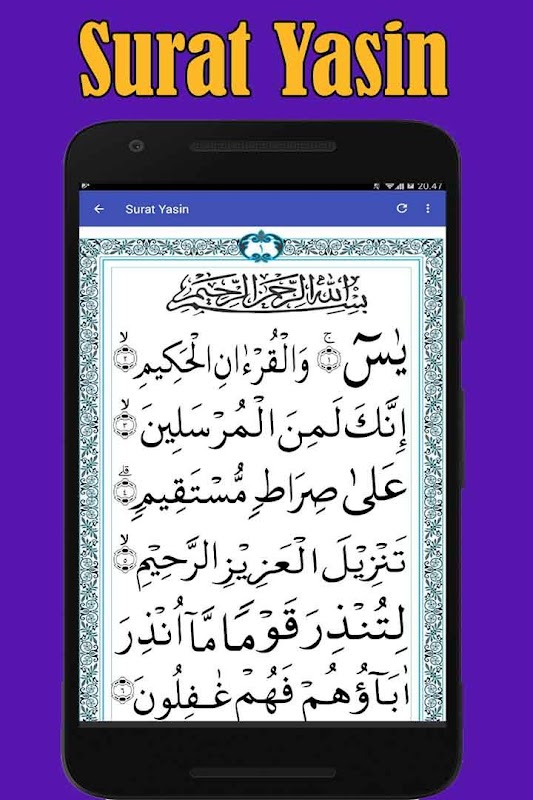 Surat Yasin
20.47
Surat Yasin
١
بِسْمِ اللّٰهِ الرَّحْمٰنِ الرَّحِيْمِ
يٰسٓ ۚ ﴿١﴾ وَالْقُرْءَانِ الْحَكِيْمِ ۙ ﴿٢﴾
إِنَّكَ لَمِنَ الْمُرْسَلِيْنَ ۙ ﴿٣﴾
عَلٰى صِرَاطٍ مُّسْتَقِيْمٍ ۗ ﴿٤﴾
تَنْزِيْلَ الْعَزِيْزِ الرَّحِيْمِ ۙ ﴿٥﴾
لِتُنْذِرَ قَوْمًا مَّآ اُنْذِرَ
اٰبَآؤُهُمْ فَهُمْ غٰفِلُوْنَ ﴿٦﴾